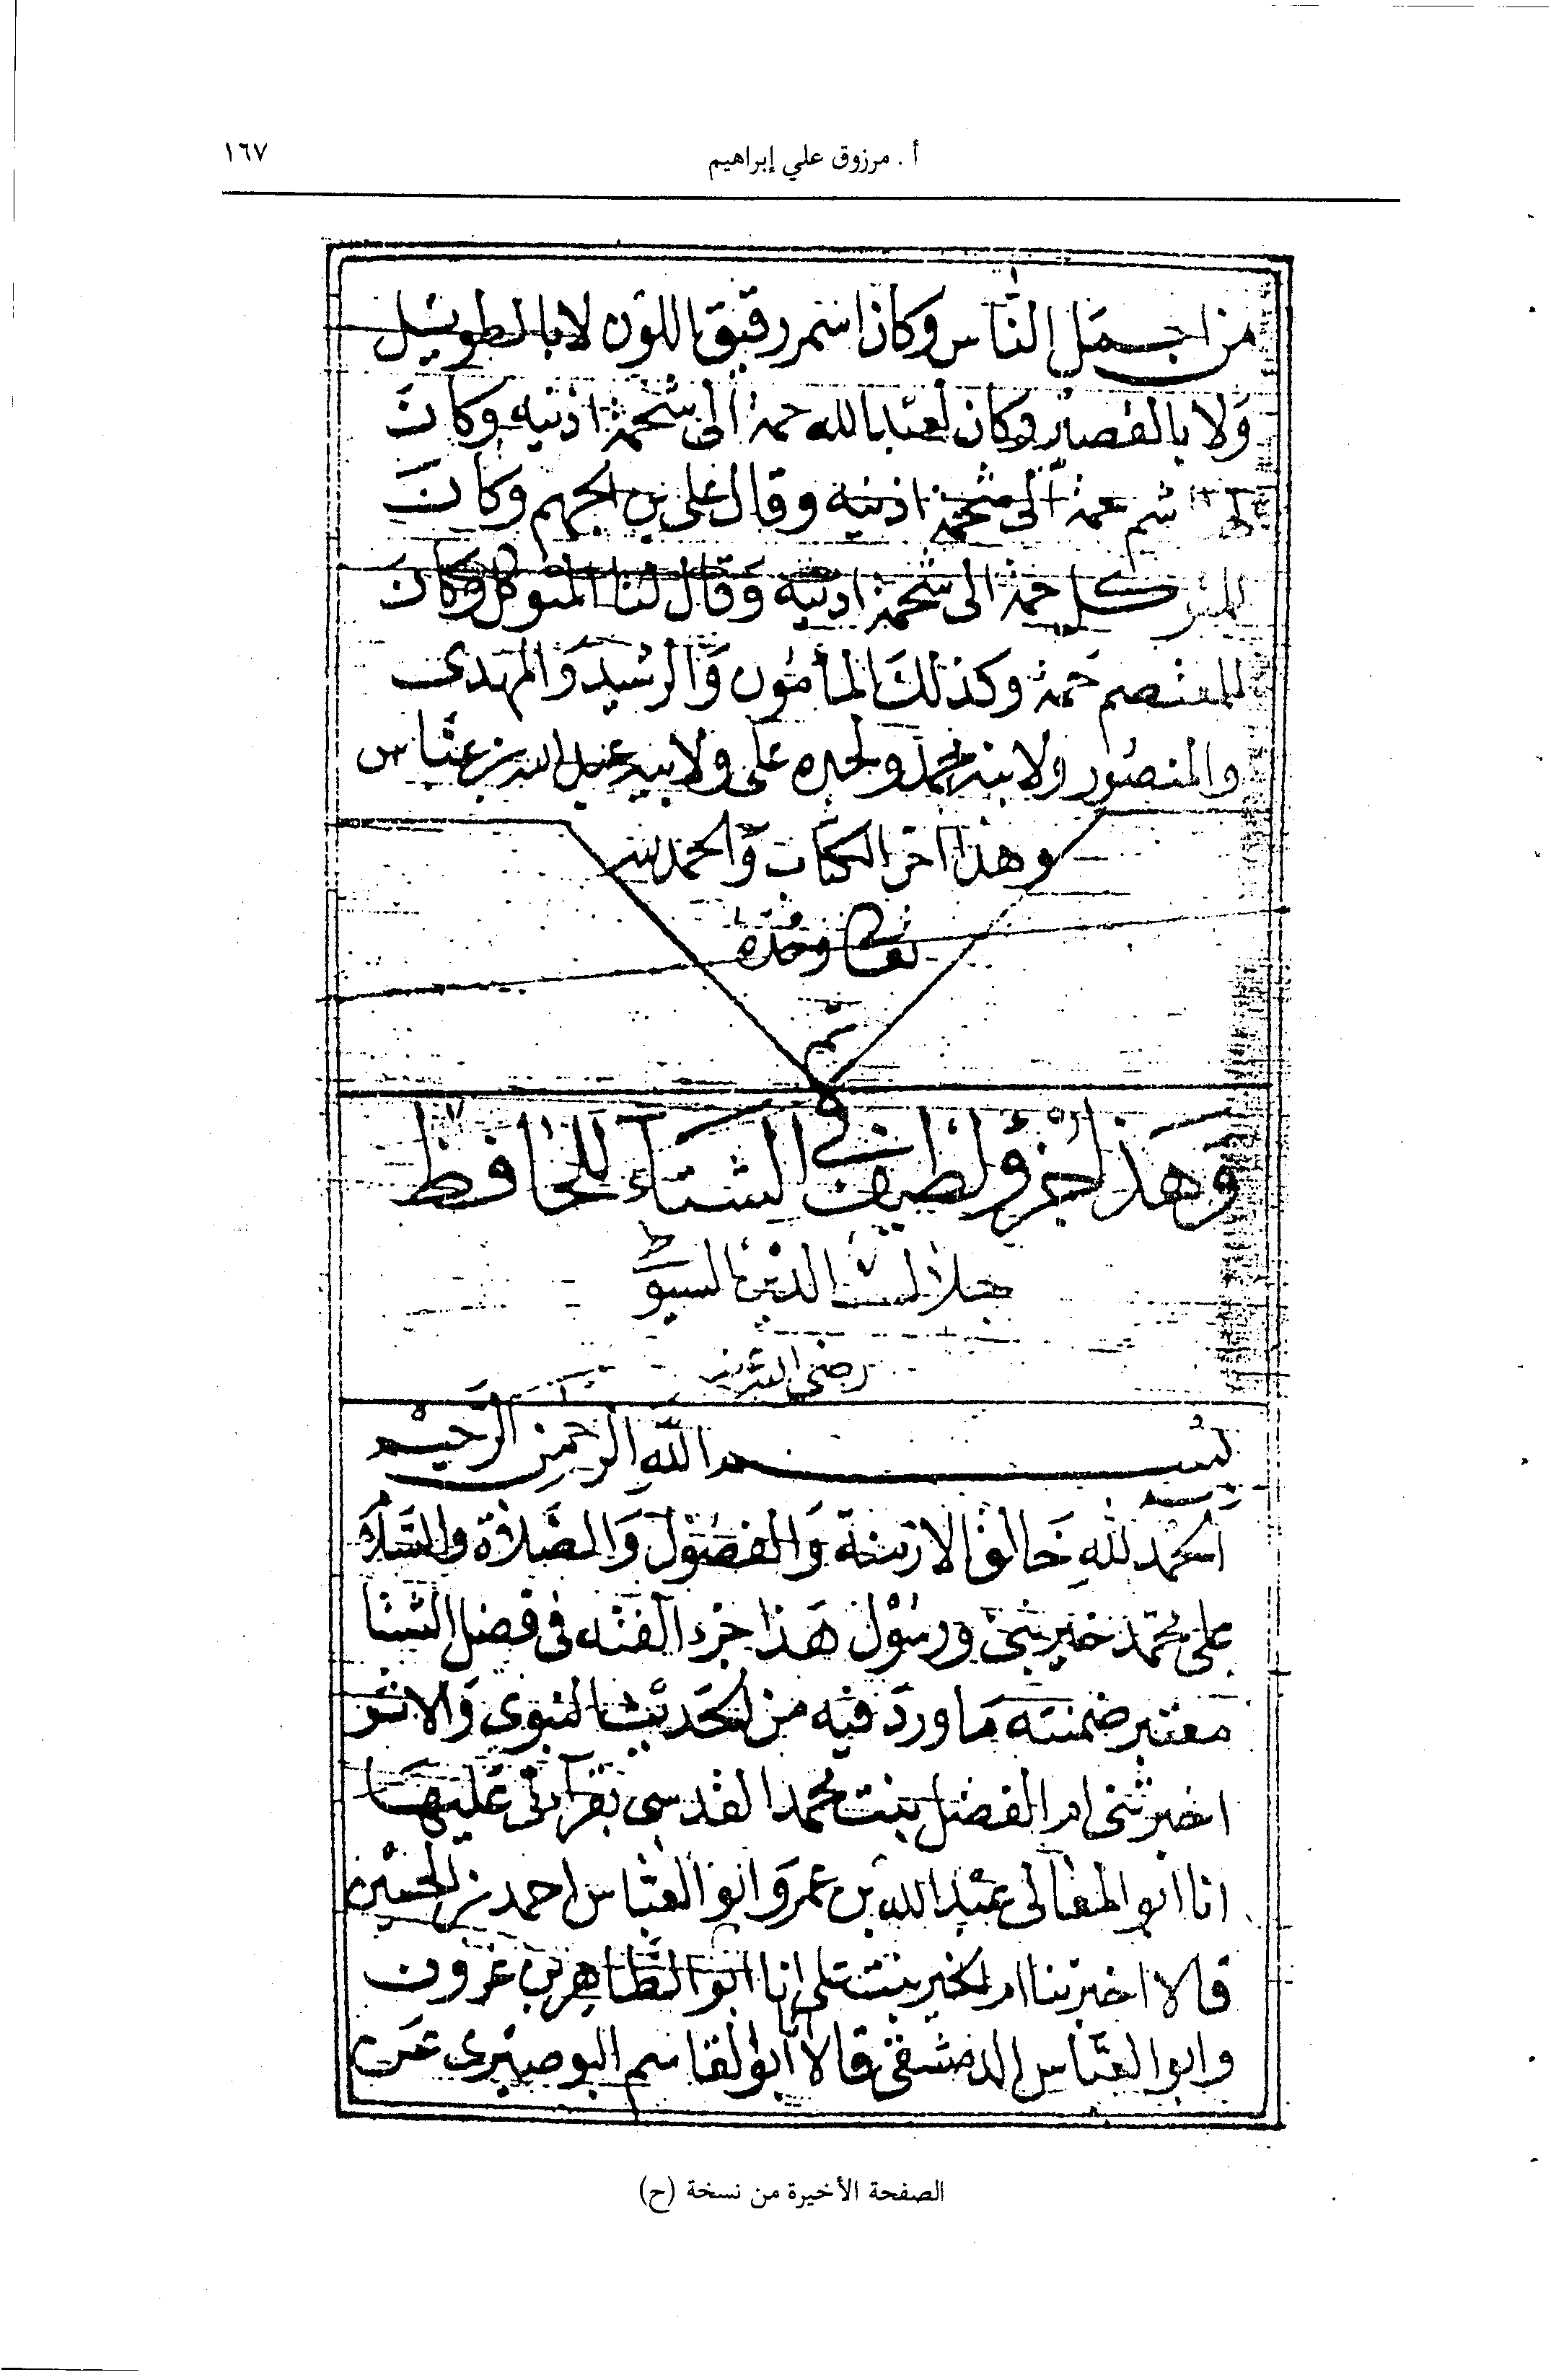 أ. مرزوق علي إبراهيم
١٦٧
من اجمل الناس وكان اسمر رقيق اللون لا بالطويل
ولا بالقصير وكان لعبد الله جمة الى شحمة اذنيه وكان
شم جمة الى شحمة اذنيه وقال على بن الجهم وكان
للمتوكل جمة الى شحمة اذنيه وقال لنا المتوكل وكان
للمعتصم جمة وكذلك المأمون والرشيد والمهدى
والمنصور ولابيه محمد ولجده على ولابيه عبد الله بن عباس
وهذا اخر الكتاب والحمد لله
تعالى وحده
تم
وهذا جزؤ لطيف في الشتاء للحافظ
جلال الدين السيوطى
رضى الله عنه
بسم الله الرحمن الرحيم
الحمد لله خالق الازمنة والفصول والصلاة والسلام
على محمد خير نبى ورسول هذا جزء الفته فى فضل الشتا
معتبر ضمنته ما ورد فيه من الحديث النبوى والاثر
اخبرتنى ام الفضل بنت محمد القدسى بقرآتى عليها
انا ابو المعالى عبد الله بن عمر وابو العباس احمد بن الحسين
قالا اخبرتنا ام الخير بنت على انا ابو الطاهر بن عزون
وابو العباس الدمشقى قالا انا ابو القاسم البوصيرى عن
الصفحة الأخيرة من نسخة (ح)